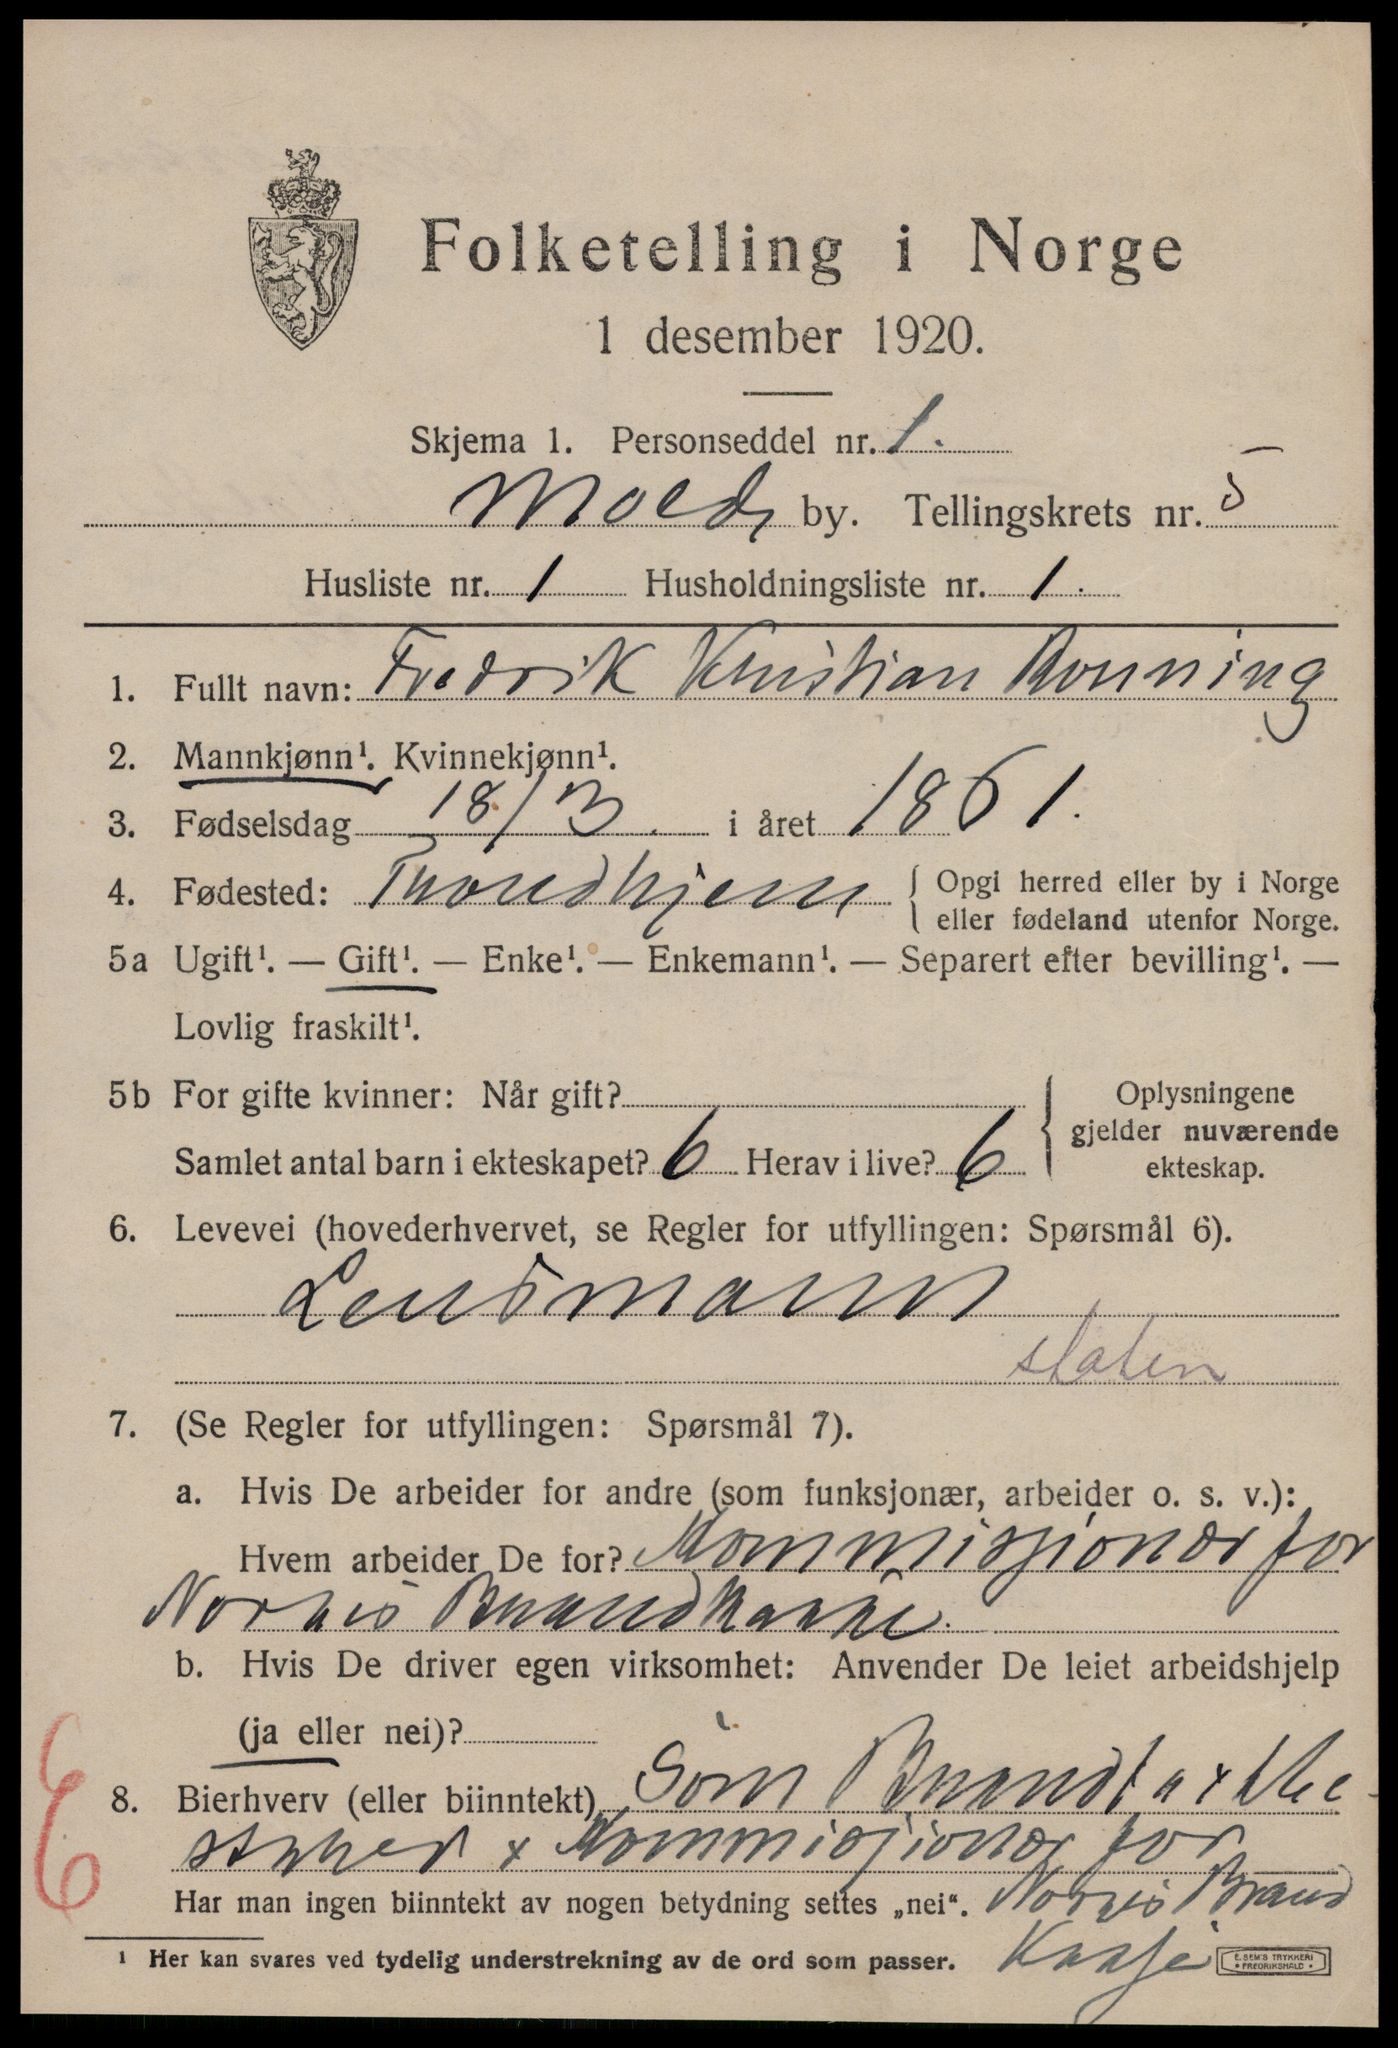 Folketelling i Norge
1 desember 1920.
Skjema 1. Personseddel nr. 1.
Molde by. Tellingskrets nr. 5
Husliste nr. 1 Husholdningsliste nr. 1.
1. Fullt navn: Fredrik Kristian Rønning
2. Mannkjønn¹. Kvinnekjønn¹.
3. Fødselsdag 18/3. i året 1861.
4. Fødested: Trondhjem { Opgi herred eller by i Norge
eller fødeland utenfor Norge.
5a Ugift¹. — Gift¹. — Enke¹. — Enkemann¹. — Separert efter bevilling¹. —
Lovlig fraskilt¹.
5b For gifte kvinner: Når gift? { Oplysningene
gjelder nuværende
ekteskap.
Samlet antal barn i ekteskapet? 6 Herav i live? 6
6. Levevei (hovederhvervet, se Regler for utfyllingen: Spørsmål 6).
Lensmann
staten
7. (Se Regler for utfyllingen: Spørsmål 7).
a. Hvis De arbeider for andre (som funksjonær, arbeider o. s. v.):
Hvem arbeider De for? Kommissjonær for
Norges Brandkasse.
b. Hvis De driver egen virksomhet: Anvender De leiet arbeidshjelp
(ja eller nei)?
8. Bierhverv (eller biinntekt) Som Brandtakst
Kommissjonær for
Har man ingen biinntekt av nogen betydning settes „nei“. Norges Brand
Kasse
¹ Her kan svares ved tydelig understrekning av de ord som passer.
E. SEM'S TRYKKERI
FREDRIKSHALD